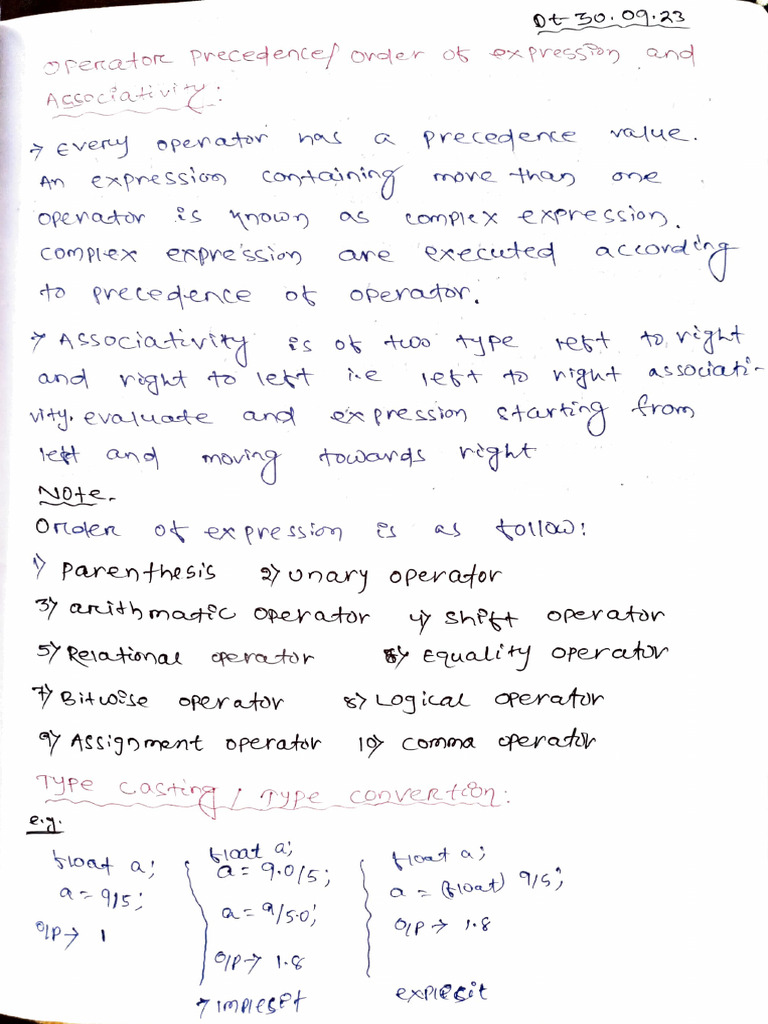 Dt 30.09.23
Operator precedence/ order of expression and
Associativity:
→ Every operator has a precedence value.
An expression containing more than one
operator is known as complex expression.
complex expression are executed according
to precedence of operator.
→ Associativity is of two type left to right
and right to left i.e left to right associati-
vity. evaluate and expression starting from
left and moving towards right
Note.
Order of expression is as follow:
1) Parenthesis 2) unary operator
3) arithmatic operator 4) shift operator
5) Relational operator 6) Equality operator
7) Bitwise operator 8) Logical operator
9) Assignment operator 10) comma operator
Type casting / Type convertion:
e.g.
float a;
a = 9/5;
O/P → 1
float a;
a = 9.0/5;
a = 9/5.0;
O/P → 1.8
→ impleset
float a;
a = (float) 9/5;
O/P → 1.8
explesit